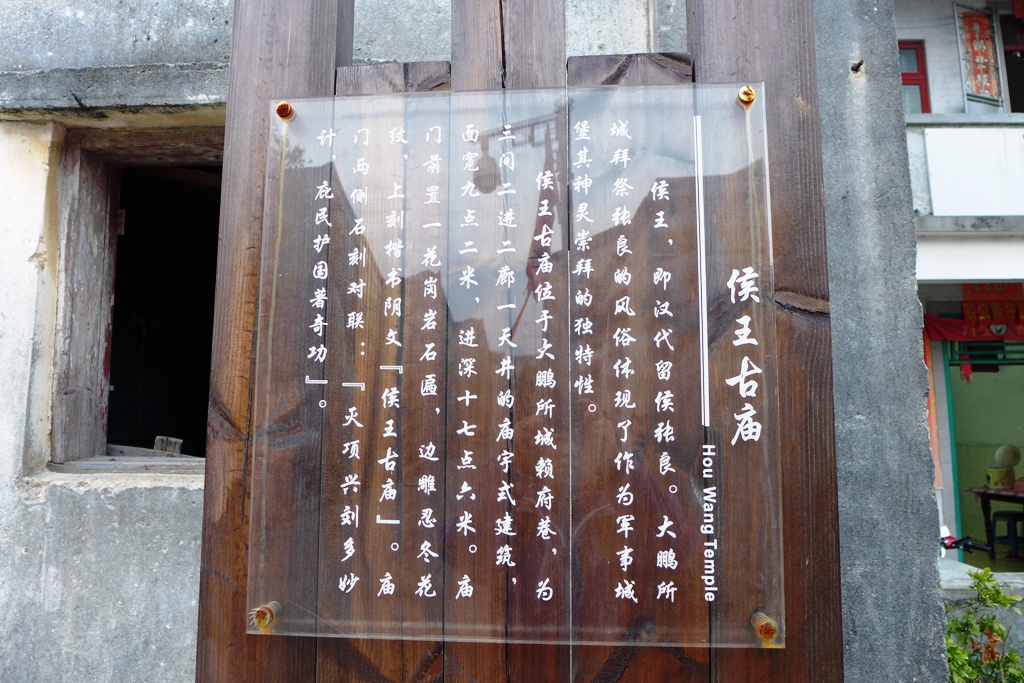 侯王古庙
Hou Wang Temple
侯王，即汉代留侯张良。大鹏所
城拜祭张良的风俗体现了作为军事城
堡其神灵崇拜的独特性。
侯王古庙位于大鹏所城赖府巷，为
三间二进二廊一天井的庙宇式建筑，
面宽九点二米，进深十七点六米。庙
门前置一花岗岩石匾，边雕忍冬花
纹，上刻楷书阴文『侯王古庙』。庙
门两侧石刻对联：『灭项兴刘多妙
计，庇民护国著奇功』。